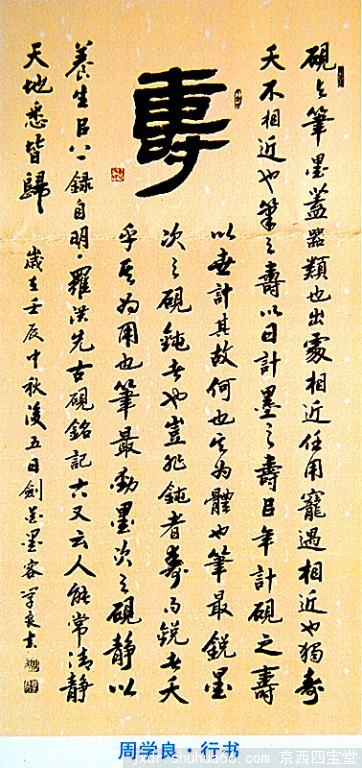 壽
硯与筆墨蓋器類也出處相近任用寵遇相近也獨壽
夭不相近也筆之壽以日計墨之壽㠯年計硯之壽
以世計其故何也其為體也筆最銳墨
次之硯鈍者也豈非鈍者壽而銳者夭
乎其為用也筆最動墨次之硯靜以
養生㠯 錄自明·羅洪先古硯銘記六又云人能常清靜
天地悉皆歸 歲在壬辰中秋後五日劍 墨客學良書
周学良·行书
京西四宝堂